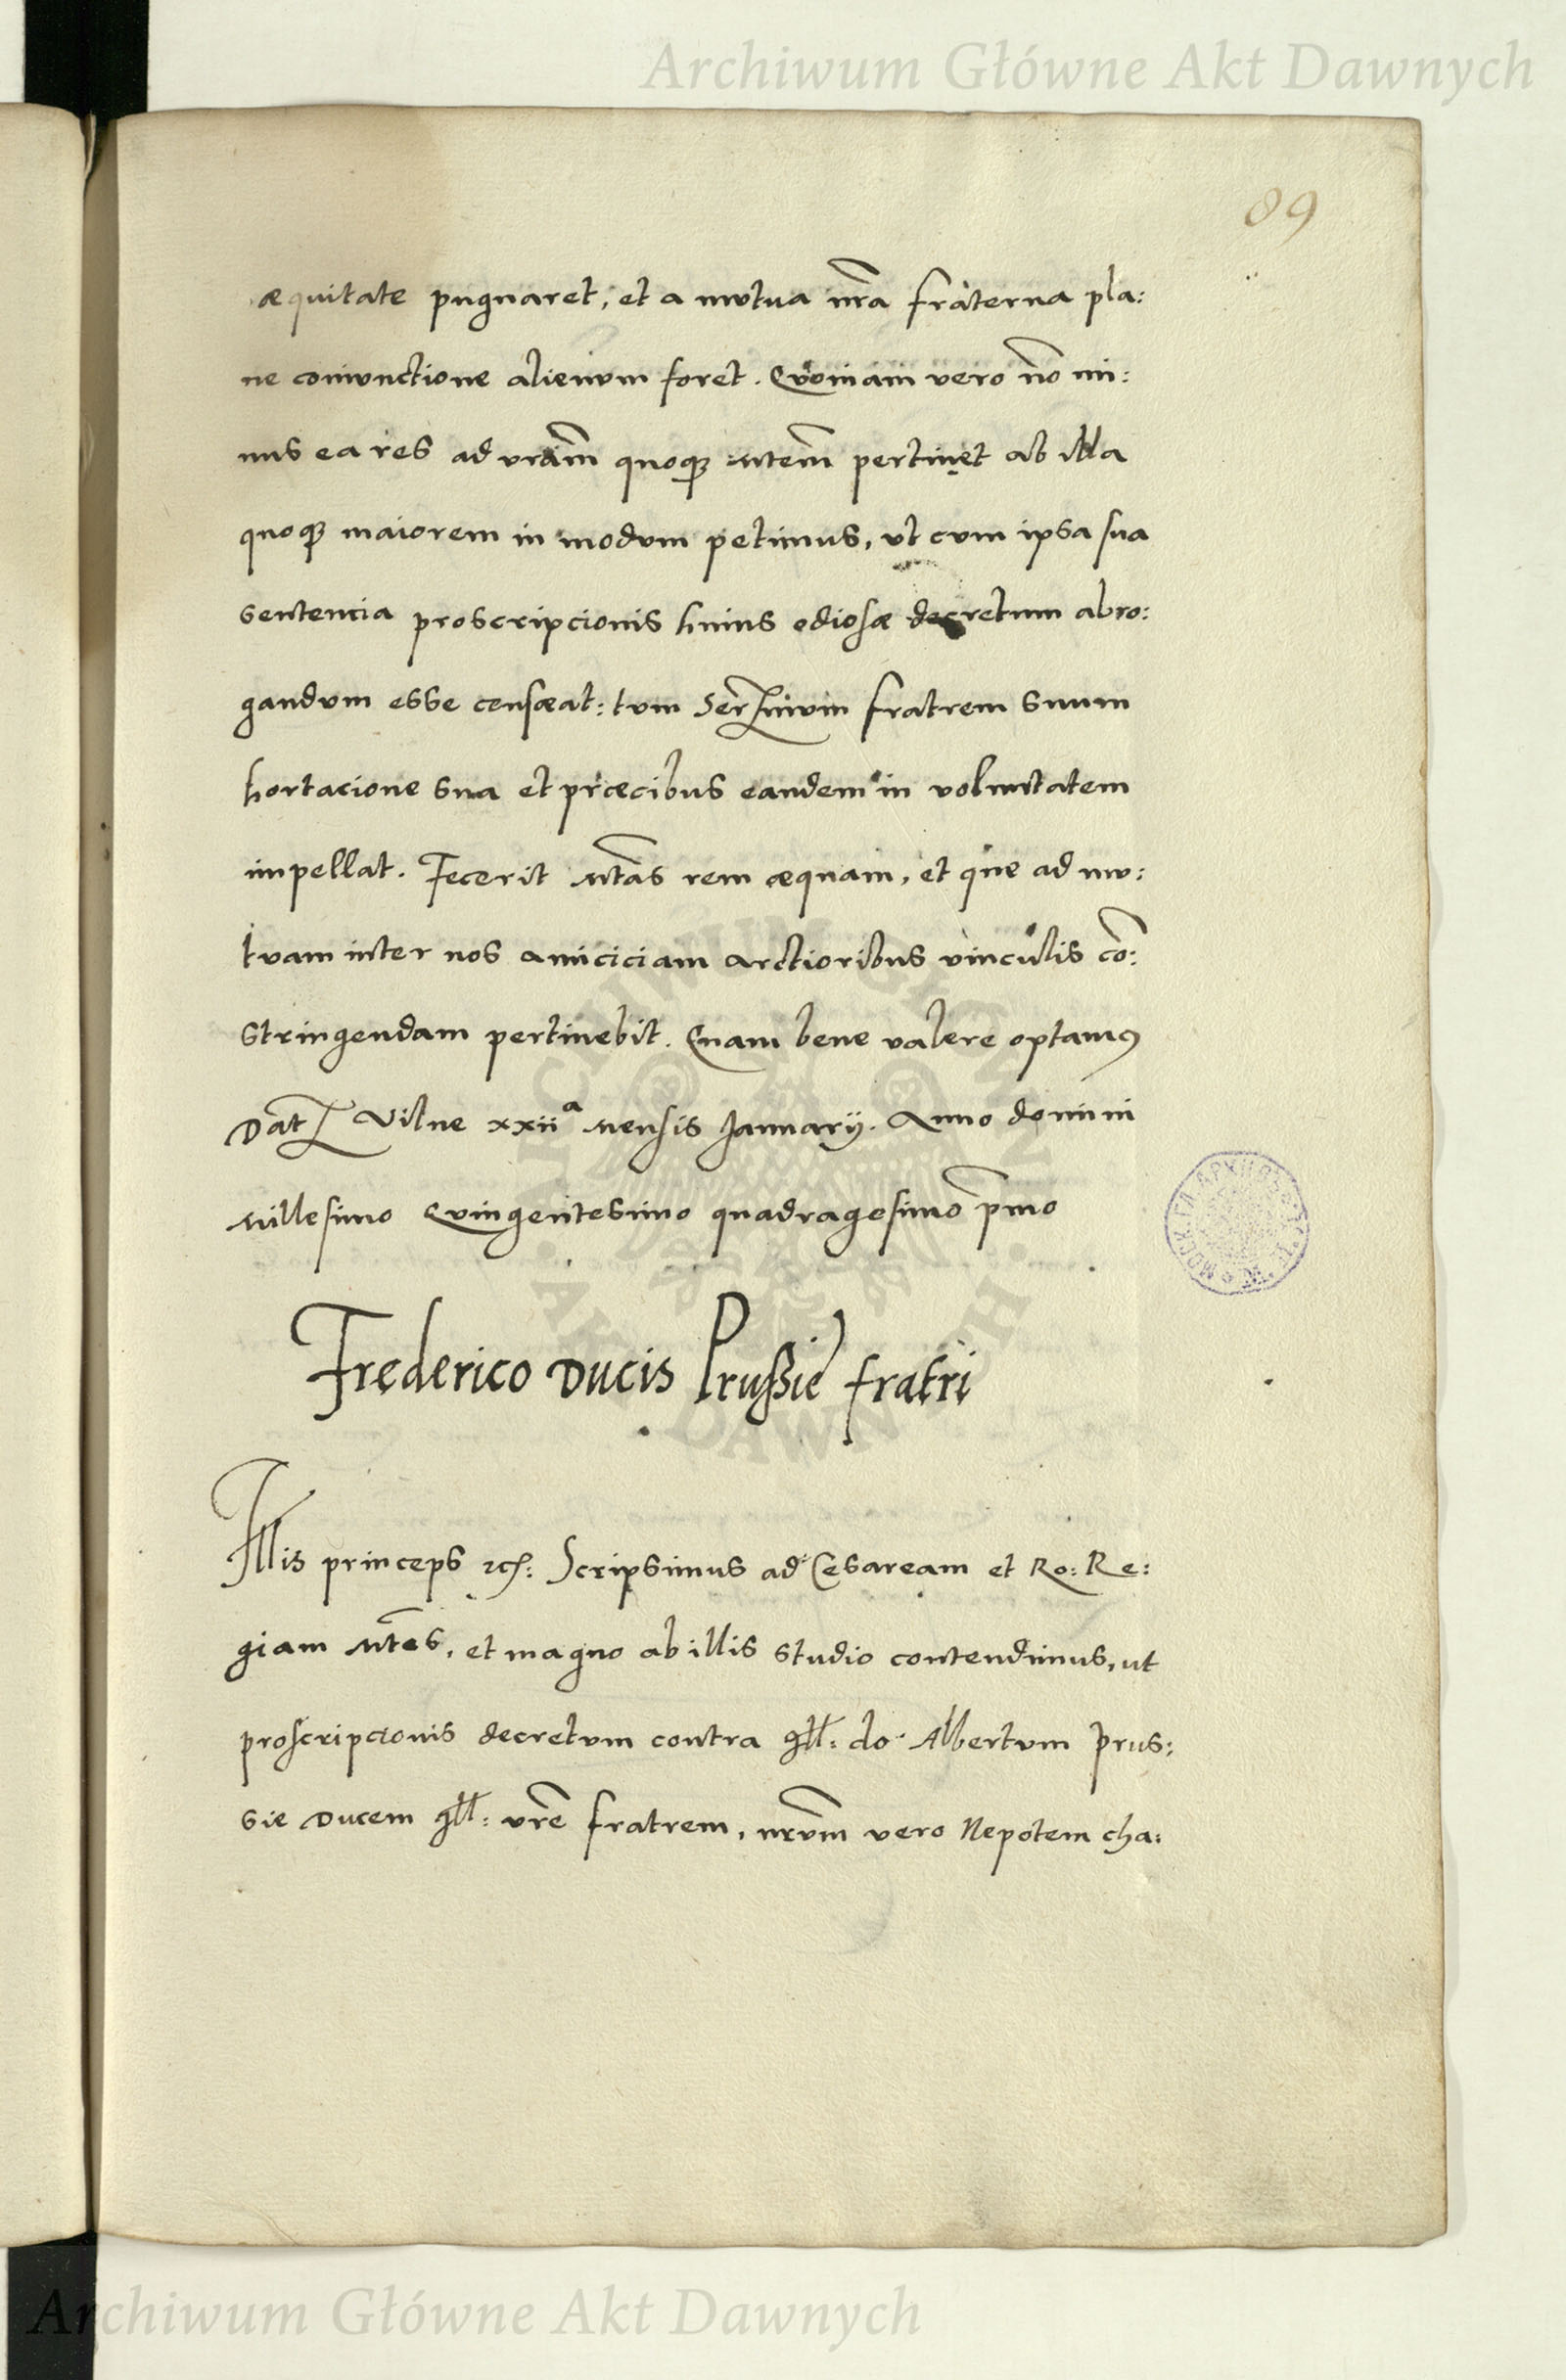 Archiwum Główne Akt Dawnych
89
æquitate pugnaret, et a mutua nr̃a fraterna pla:
ne coniunctione alienum foret. Quoniam vero nõ mi:
nus ea res ad vrãm quoq₃ Mtem̃ pertinet ab illa
quoq₃ maiorem in modum petimus, ut cum ipsa sua
sentencia proscripcionis huius odiosæ decretum abro:
gandum esse censæat: tum Ser̃mum fratrem suum
hortacione sua et præcibus eandem in voluntatem
impellat. Fecerit Mtãs rem æquam, et que ad mu:
tuam inter nos amiciciam arctioribus vinculis cõ:
stringendam pertinebit. Quam bene valere optamꝰ
Dat̃ Vilne xxiiᵃ Mensis Januarij. Anno domini
Millesimo Quingentesimo quadragesimo p̃mo
Frederico Ducis Prussie fratri
Illis princeps etc: Scripsimus ad Cesaream et Ro: Re:
giam Mtẽs, et magno ab illis studio contendimus, ut
proscripcionis decretum contra Ill: do Albertum Prus:
sie Ducem Ill: vrẽ fratrem, nrũm vero Nepotem cha:
ARCHIWUM GŁÓWNE
AKT DAWNYCH
Archiwum Główne Akt Dawnych